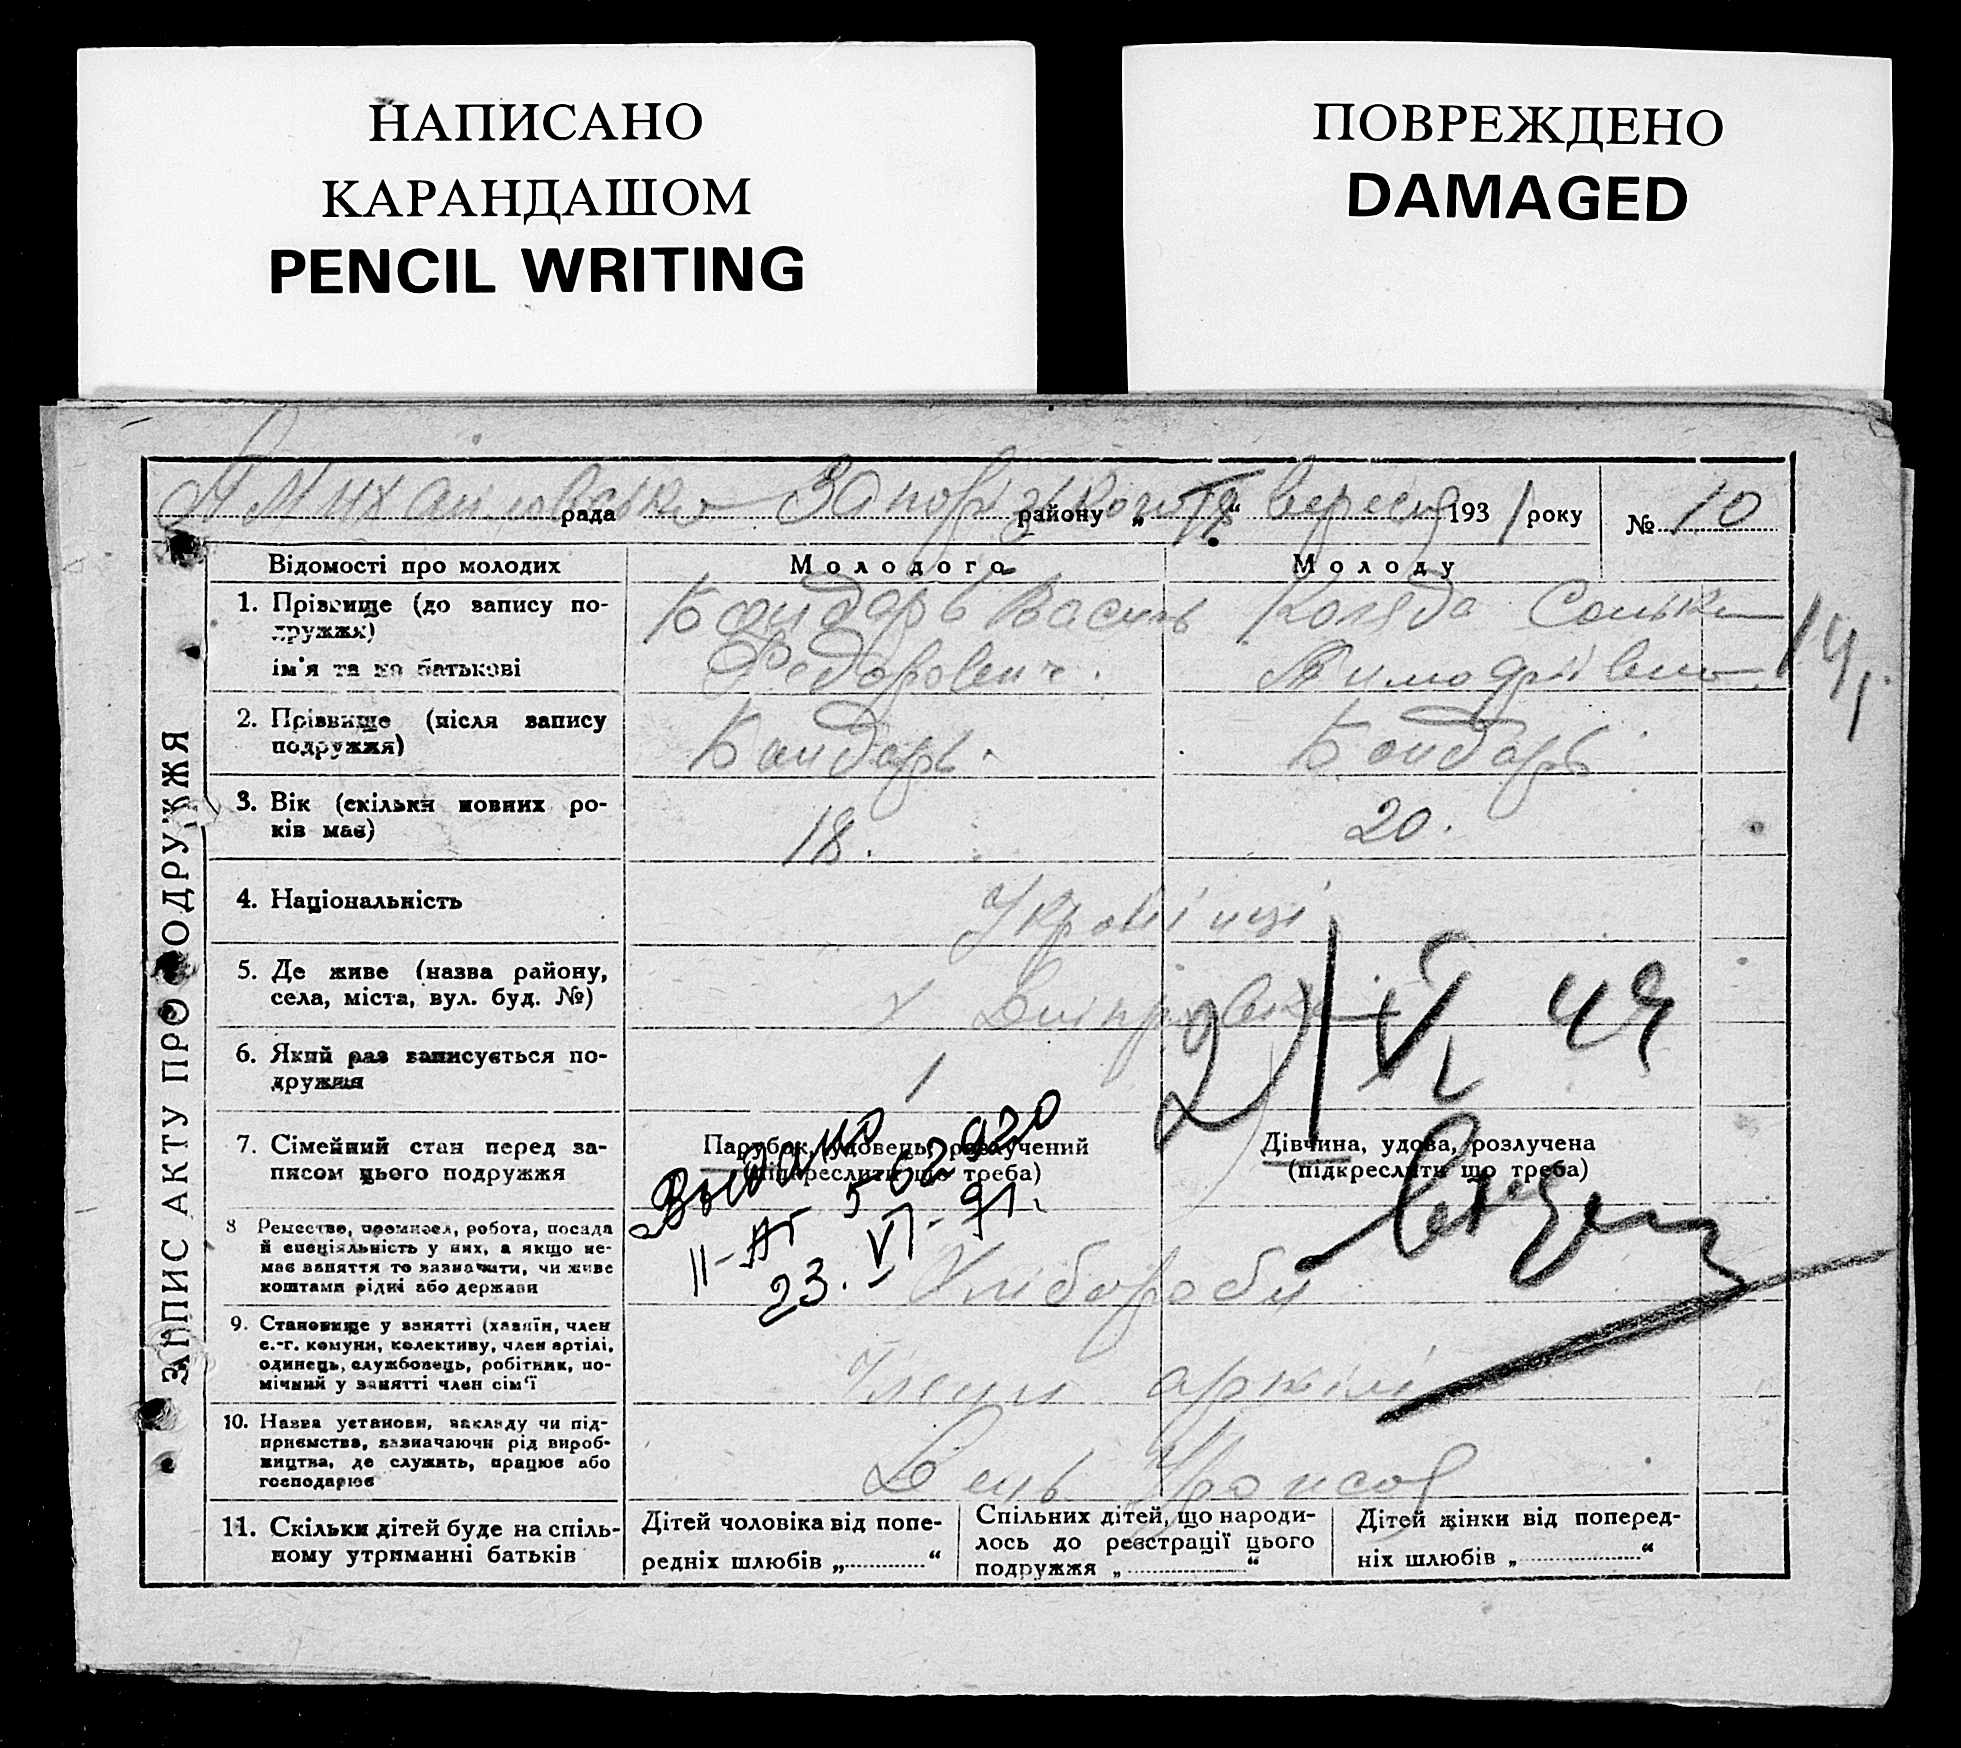 НАПИСАНО
КАРАНДАШОМ
PENCIL WRITING
ПОВРЕЖДЕНО
DAMAGED
рада Запорізького району „ “ вересня 1931 року № 10
ЗАПИС АКТУ ПРО ПОДРУЖЖЯ
Відомості про молодих Молодого Молоду
1. Прізвище (до запису по-
дружжя)
ім'я та по батькові
Бондарь Василь
Федорович.
Коляда
14
2. Прізвище (після запису
подружжя)
Бондарь.
Бондарь
3. Вік (скільки повних ро-
ків має)
18.
20.
4. Національність
Українці
5. Де живе (назва району,
села, міста, вул. буд. №)
х Дніпровка
6. Який раз записується по-
дружжя
1
21 VI 49
7. Сімейний стан перед за-
писом цього подружжя
Парубок, удовець, розлучений
(підкреслити що треба)
Дівчина, удова, розлучена
(підкреслити що треба)
Выдано
II-АГ 562920
23. VI-91.
8 Ремество, промисел, робота, посада
й спеціяльність у них, а якщо не-
має заняття то зазначити, чи живе
коштами рідні або держави
Хлібороби
9. Становище у занятті (хазяїн, член
с.-г. комуни, колективу, член артілі,
одинець, службовець, робітник, по-
мічний у занятті член сім'ї
Члени артілі
10. Назва установи, закладу чи під-
приємства, зазначаючи рід вироб-
ництва, де служить, працює або
господарює
День Урожая
11. Скільки дітей буде на спіль-
ному утриманні батьків
Дітей чоловіка від попе-
редніх шлюбів „ “
Спільних дітей, що народи-
лось до реєстрації цього
подружжя „ “
Дітей жінки від поперед-
ніх шлюбів „ “